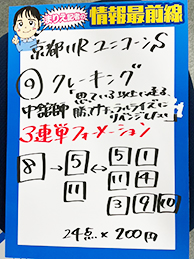 まりえ記者の
情報最前線
京都11R ユニコーンS
⑨ クレーキング
思っている以上に違う。
中舘師 勝け
リベンジしへ
3連単フォーメーション
8 → 5 ↔ 5 1
11 11 4
3 9 10
24点 × 200円